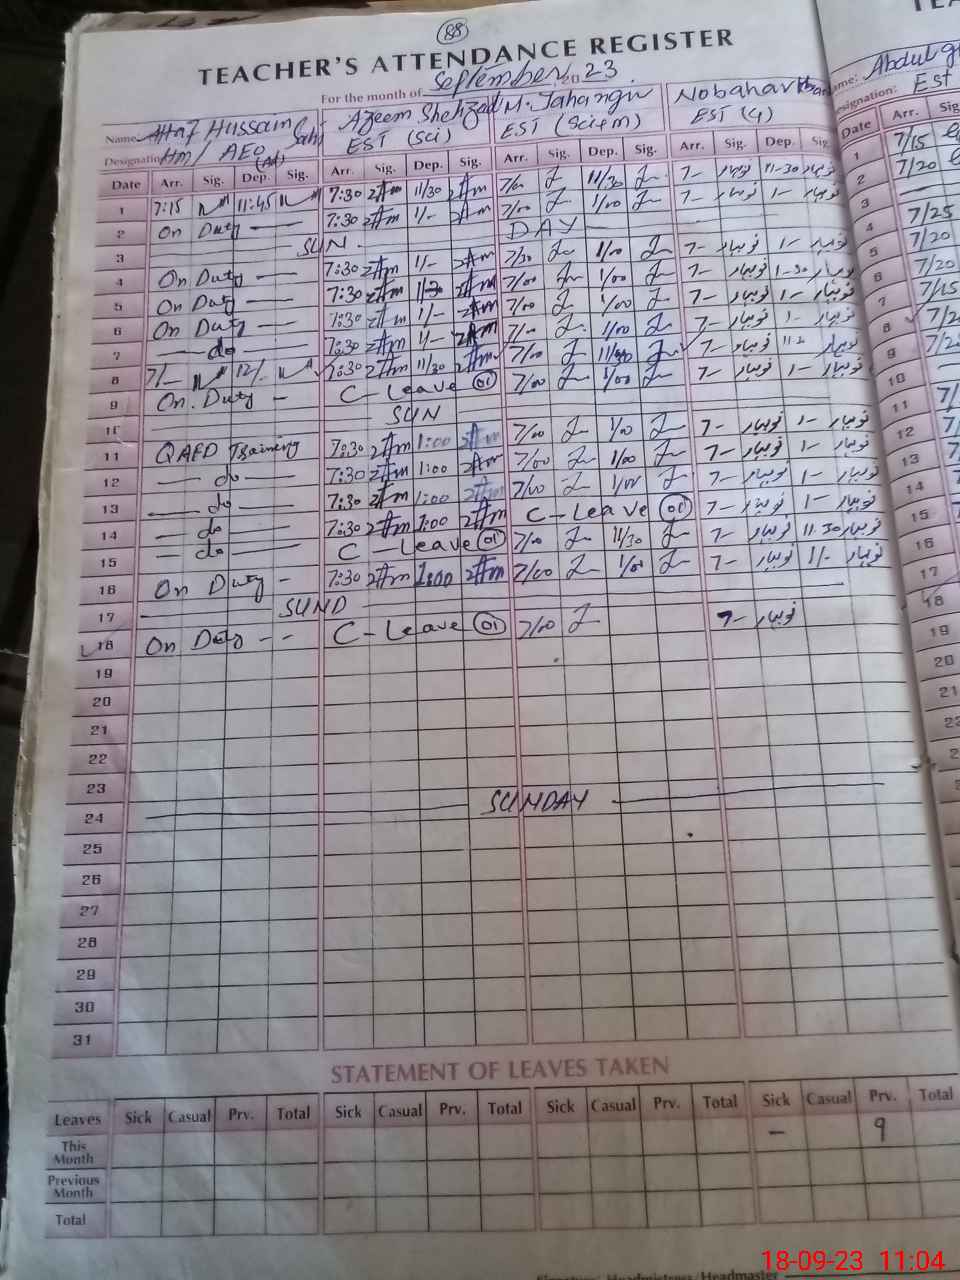 88
TEACHER'S ATTENDANCE REGISTER
For the month of September 2023
Name: Altaf Hussain Sahi Azeem Shehzad M. Jahangir Nobahar Name: Abdul
Designation: Hm / AEO (Ad) EST (Sci) EST (Sci+m) EST (4) Designation: Est
Date Arr. Sig. Dep. Sig. Arr. Sig. Dep. Sig. Arr. Sig. Dep. Sig. Arr. Sig. Dep. Sig. Date Arr. Sig.
1 7:15 11:45 7:30 11/30 7/00 11/30 7- نوبہار 11-30 نوبہار 1 7/15
2 On Duty — 7:30 1/- 7/00 1/00 7- نوبہار 1- نوبہار 2 7/20
3 SUN DAY 3
4 On Duty — 7:30 1/- 7/00 1/00 7- نوبہار 1- نوبہار 4 7/25
5 On Duty — 7:30 11/30 7/00 1/00 7- نوبہار 1-30 نوبہار 5 7/20
6 On Duty — 7:30 1/- 7/00 1/00 7- نوبہار 1- نوبہار 6 7/20
7 — do — 7:30 1/- 7/00 1/00 7- نوبہار 1- نوبہار 7 7/15
8 7/- 12/- 7:30 11/30 7/00 7- نوبہار نوبہار 8
9 On Duty - C-Leave 01 7/00 1/00 7- نوبہار 1- نوبہار 9
SUN 10
11 QAED Training 7:30 1:00 7/00 1/00 7- نوبہار 1- نوبہار 11
12 — do — 7:30 1:00 7/00 1/00 7- نوبہار 1- نوبہار 12
13 — do — 7:30 1:00 7/00 1/00 7- نوبہار 1- نوبہار 13
14 — do — 7:30 1:00 C-Leave 01 7- نوبہار 1- نوبہار 14
15 — do — C-Leave 01 7/00 11/30 7- نوبہار 11-30 نوبہار 15
16 On Duty - 7:30 1:00 7/00 1/00 7- نوبہار 1/- نوبہار 16
17 SUND 17
18 On Duty - - C-Leave 01 7/00 7- نوبہار 18
19 19
20 20
21 21
22
23
24 SUNDAY
25
26
27
28
29
30
31
STATEMENT OF LEAVES TAKEN
Leaves Sick Casual Prv. Total Sick Casual Prv. Total Sick Casual Prv. Total Sick Casual Prv. Total
This Month – 9
Previous Month
Total
18-09-23 11:04